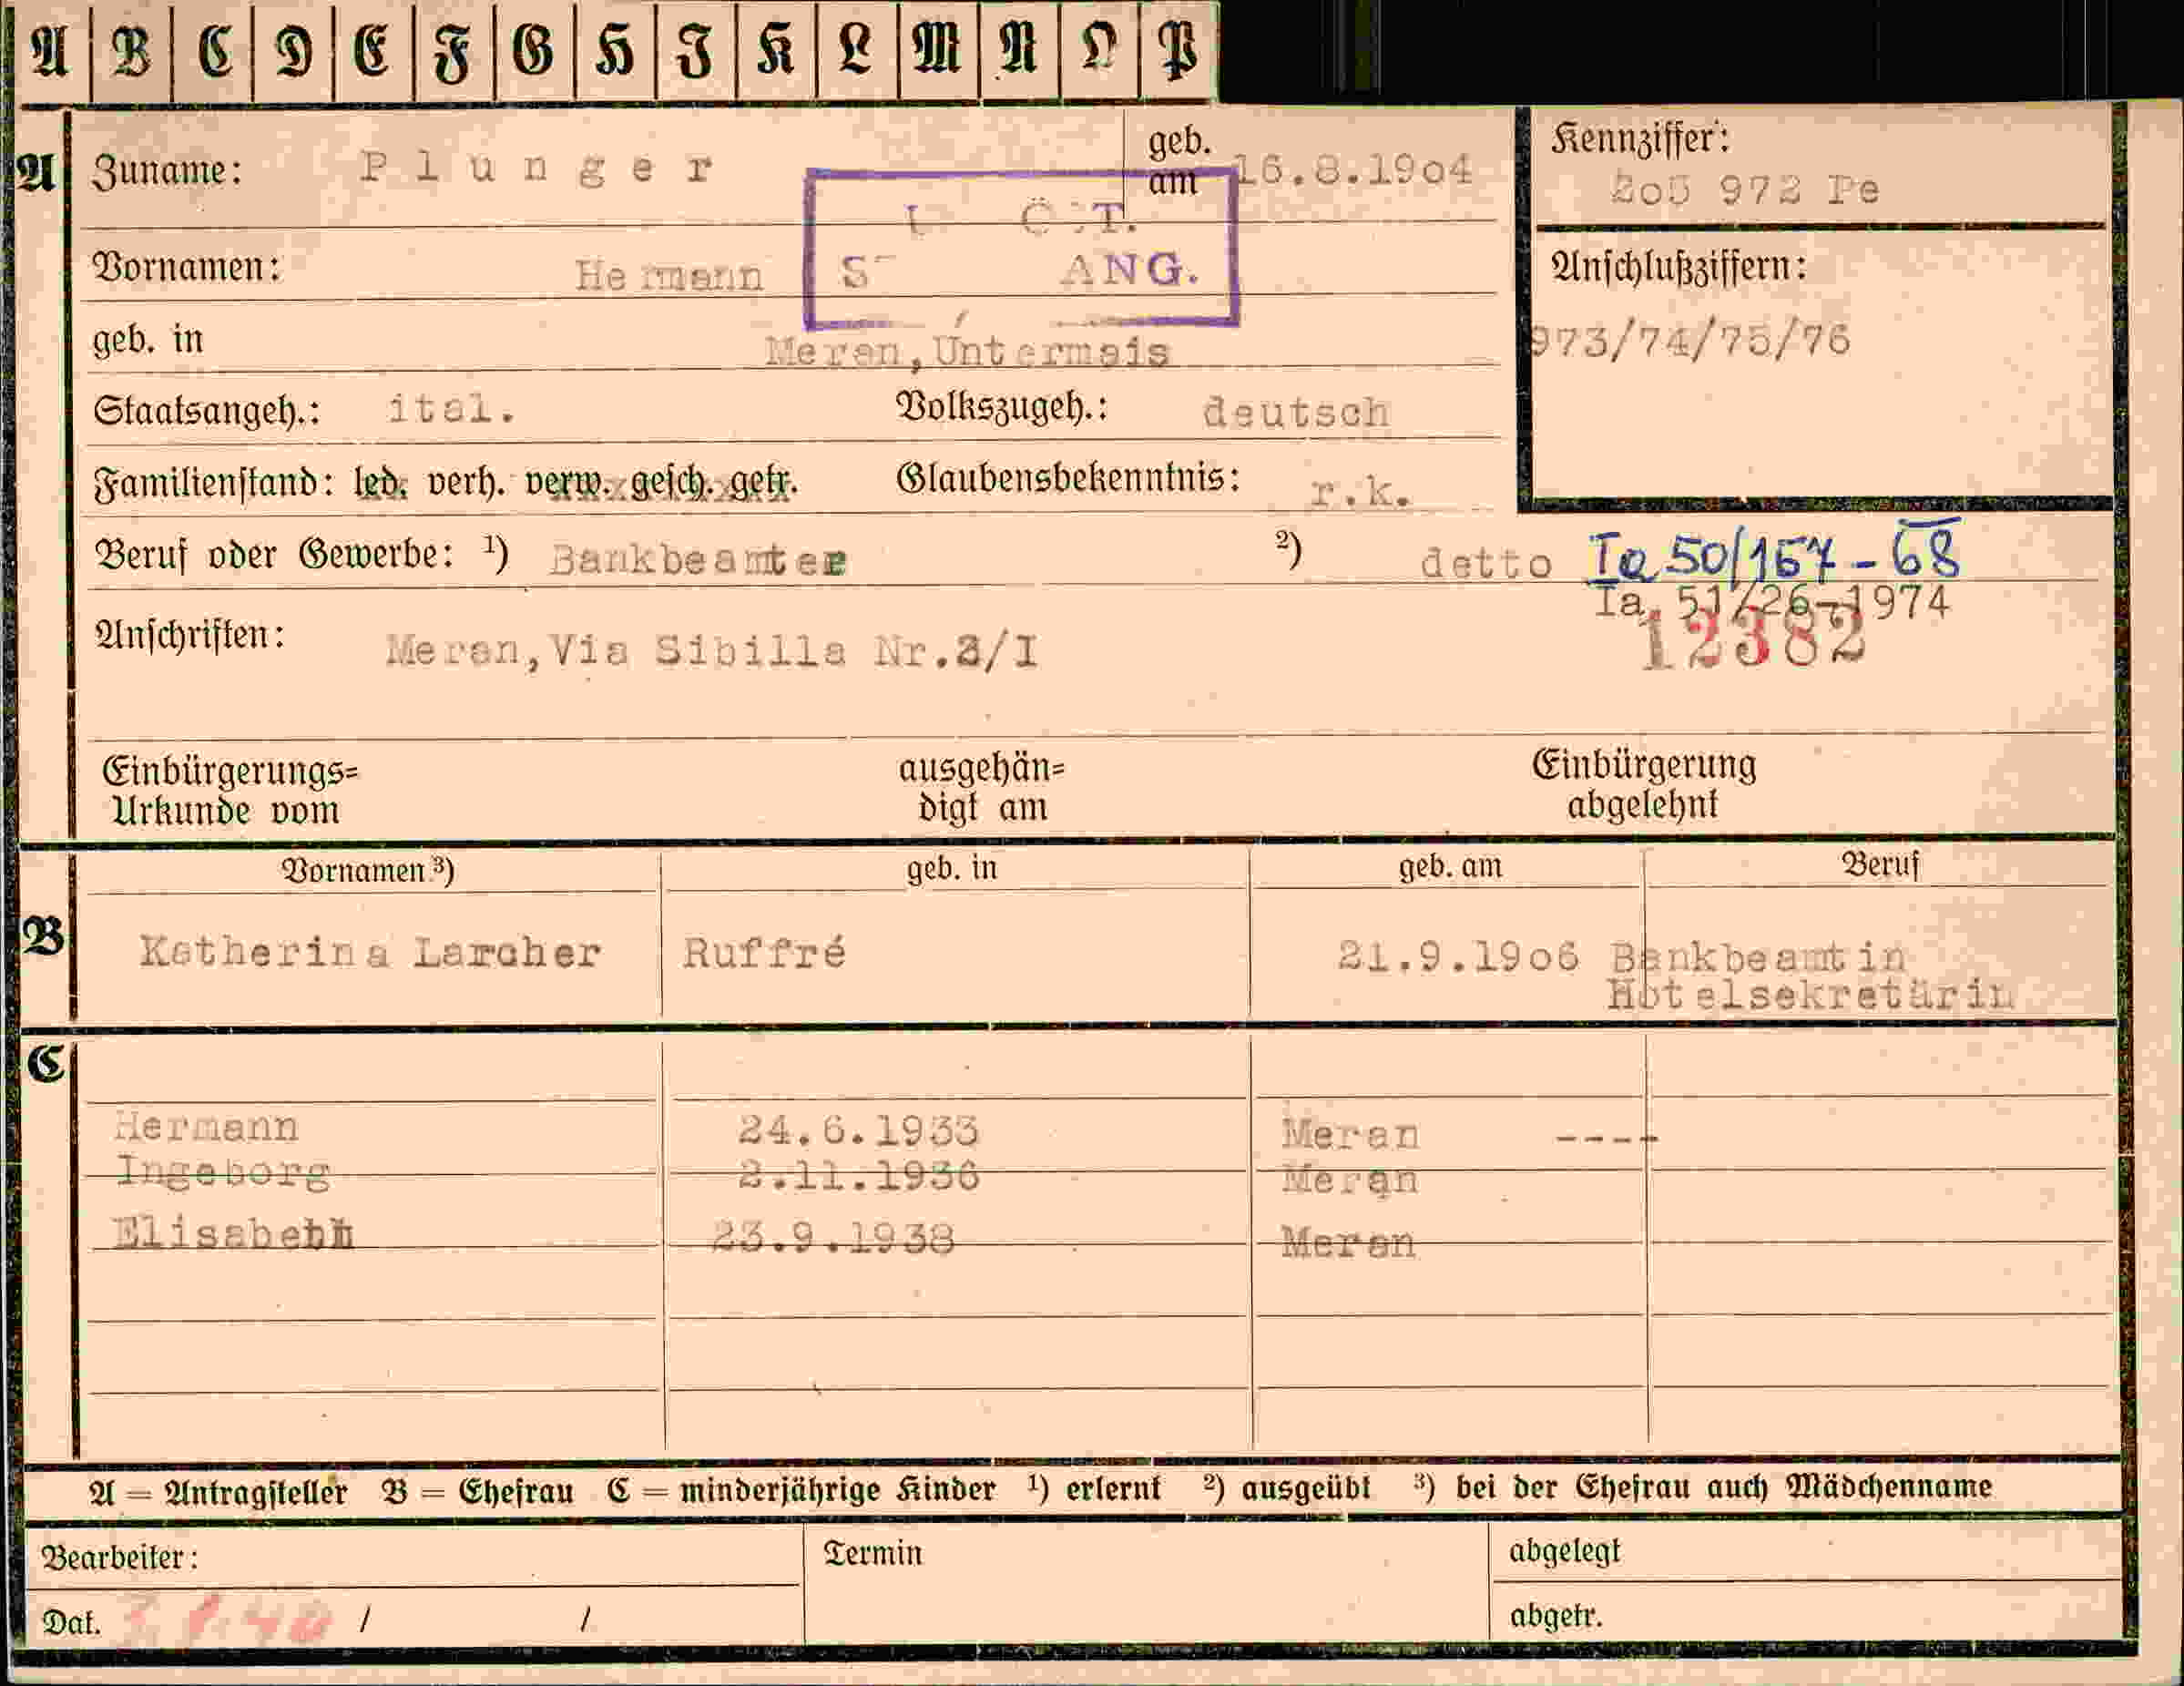 A B C D E F G H J K L M N O P
A Zuname: Plunger geb. am 16.8.1904 Kennziffer:
2o5 972 Pe
ÖST.
Vornamen: Hermann ANG. Anschlußziffern:
geb. in Meran,Untermais 973/74/75/76
Staatsangeh.: ital. Volkszugeh.: deutsch
Familienstand: led. verh. verw. gesch. getr. Glaubensbekenntnis: r.k.
Beruf oder Gewerbe: 1) Bankbeamter 2) detto Ia 50/167-68
Ia. 51/26-1974
12382
Anschriften: Meran,Via Sibilla Nr.3/I
Einbürgerungs= ausgehän= Einbürgerung
Urkunde vom digt am abgelehnt
Vornamen 3) geb. in geb. am Beruf
B Katherina Larcher Ruffré 21.9.19o6 Bankbeamtin
Hotelsekretärin
C
Hermann 24.6.1933 Meran ----
Ingeborg 2.11.1936 Meran
Elisabeth 23.9.1938 Meran
A = Antragsteller B = Ehefrau C = minderjährige Kinder 1) erlernt 2) ausgeübt 3) bei der Ehefrau auch Mädchenname
Bearbeiter: Termin abgelegt
Dat. / / abgetr.